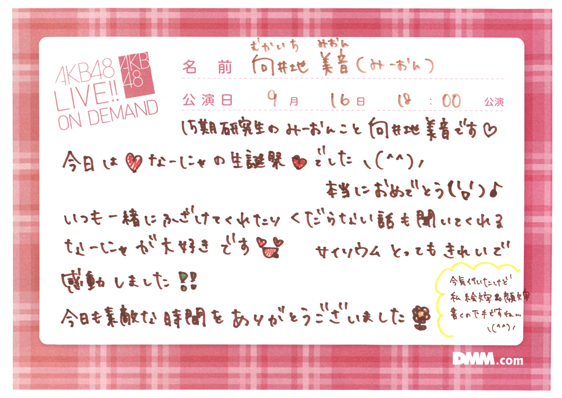 AKB48
LIVE!!
ON DEMAND
AKB
48
むかいち みおん
名 前 向井地 美音(みーおん)
公演日 9月 16日 18:00 公演
15期研究生のみーおんこと 向井地美音です♡
今日は♥なーにゃの生誕祭♥でした \(^^)/
本当におめでとう(^o^)♪
いつも一緒にふざけてくれたり くだらない話も聞いてくれる
なーにゃが大好きです サイリウム とってもきれいで
感動しました!!
今日も素敵な時間をありがとうございました
今気付いたけど
私 絵文字&顔文字
書くの下手ですね…
\(^^)/
DMM.com